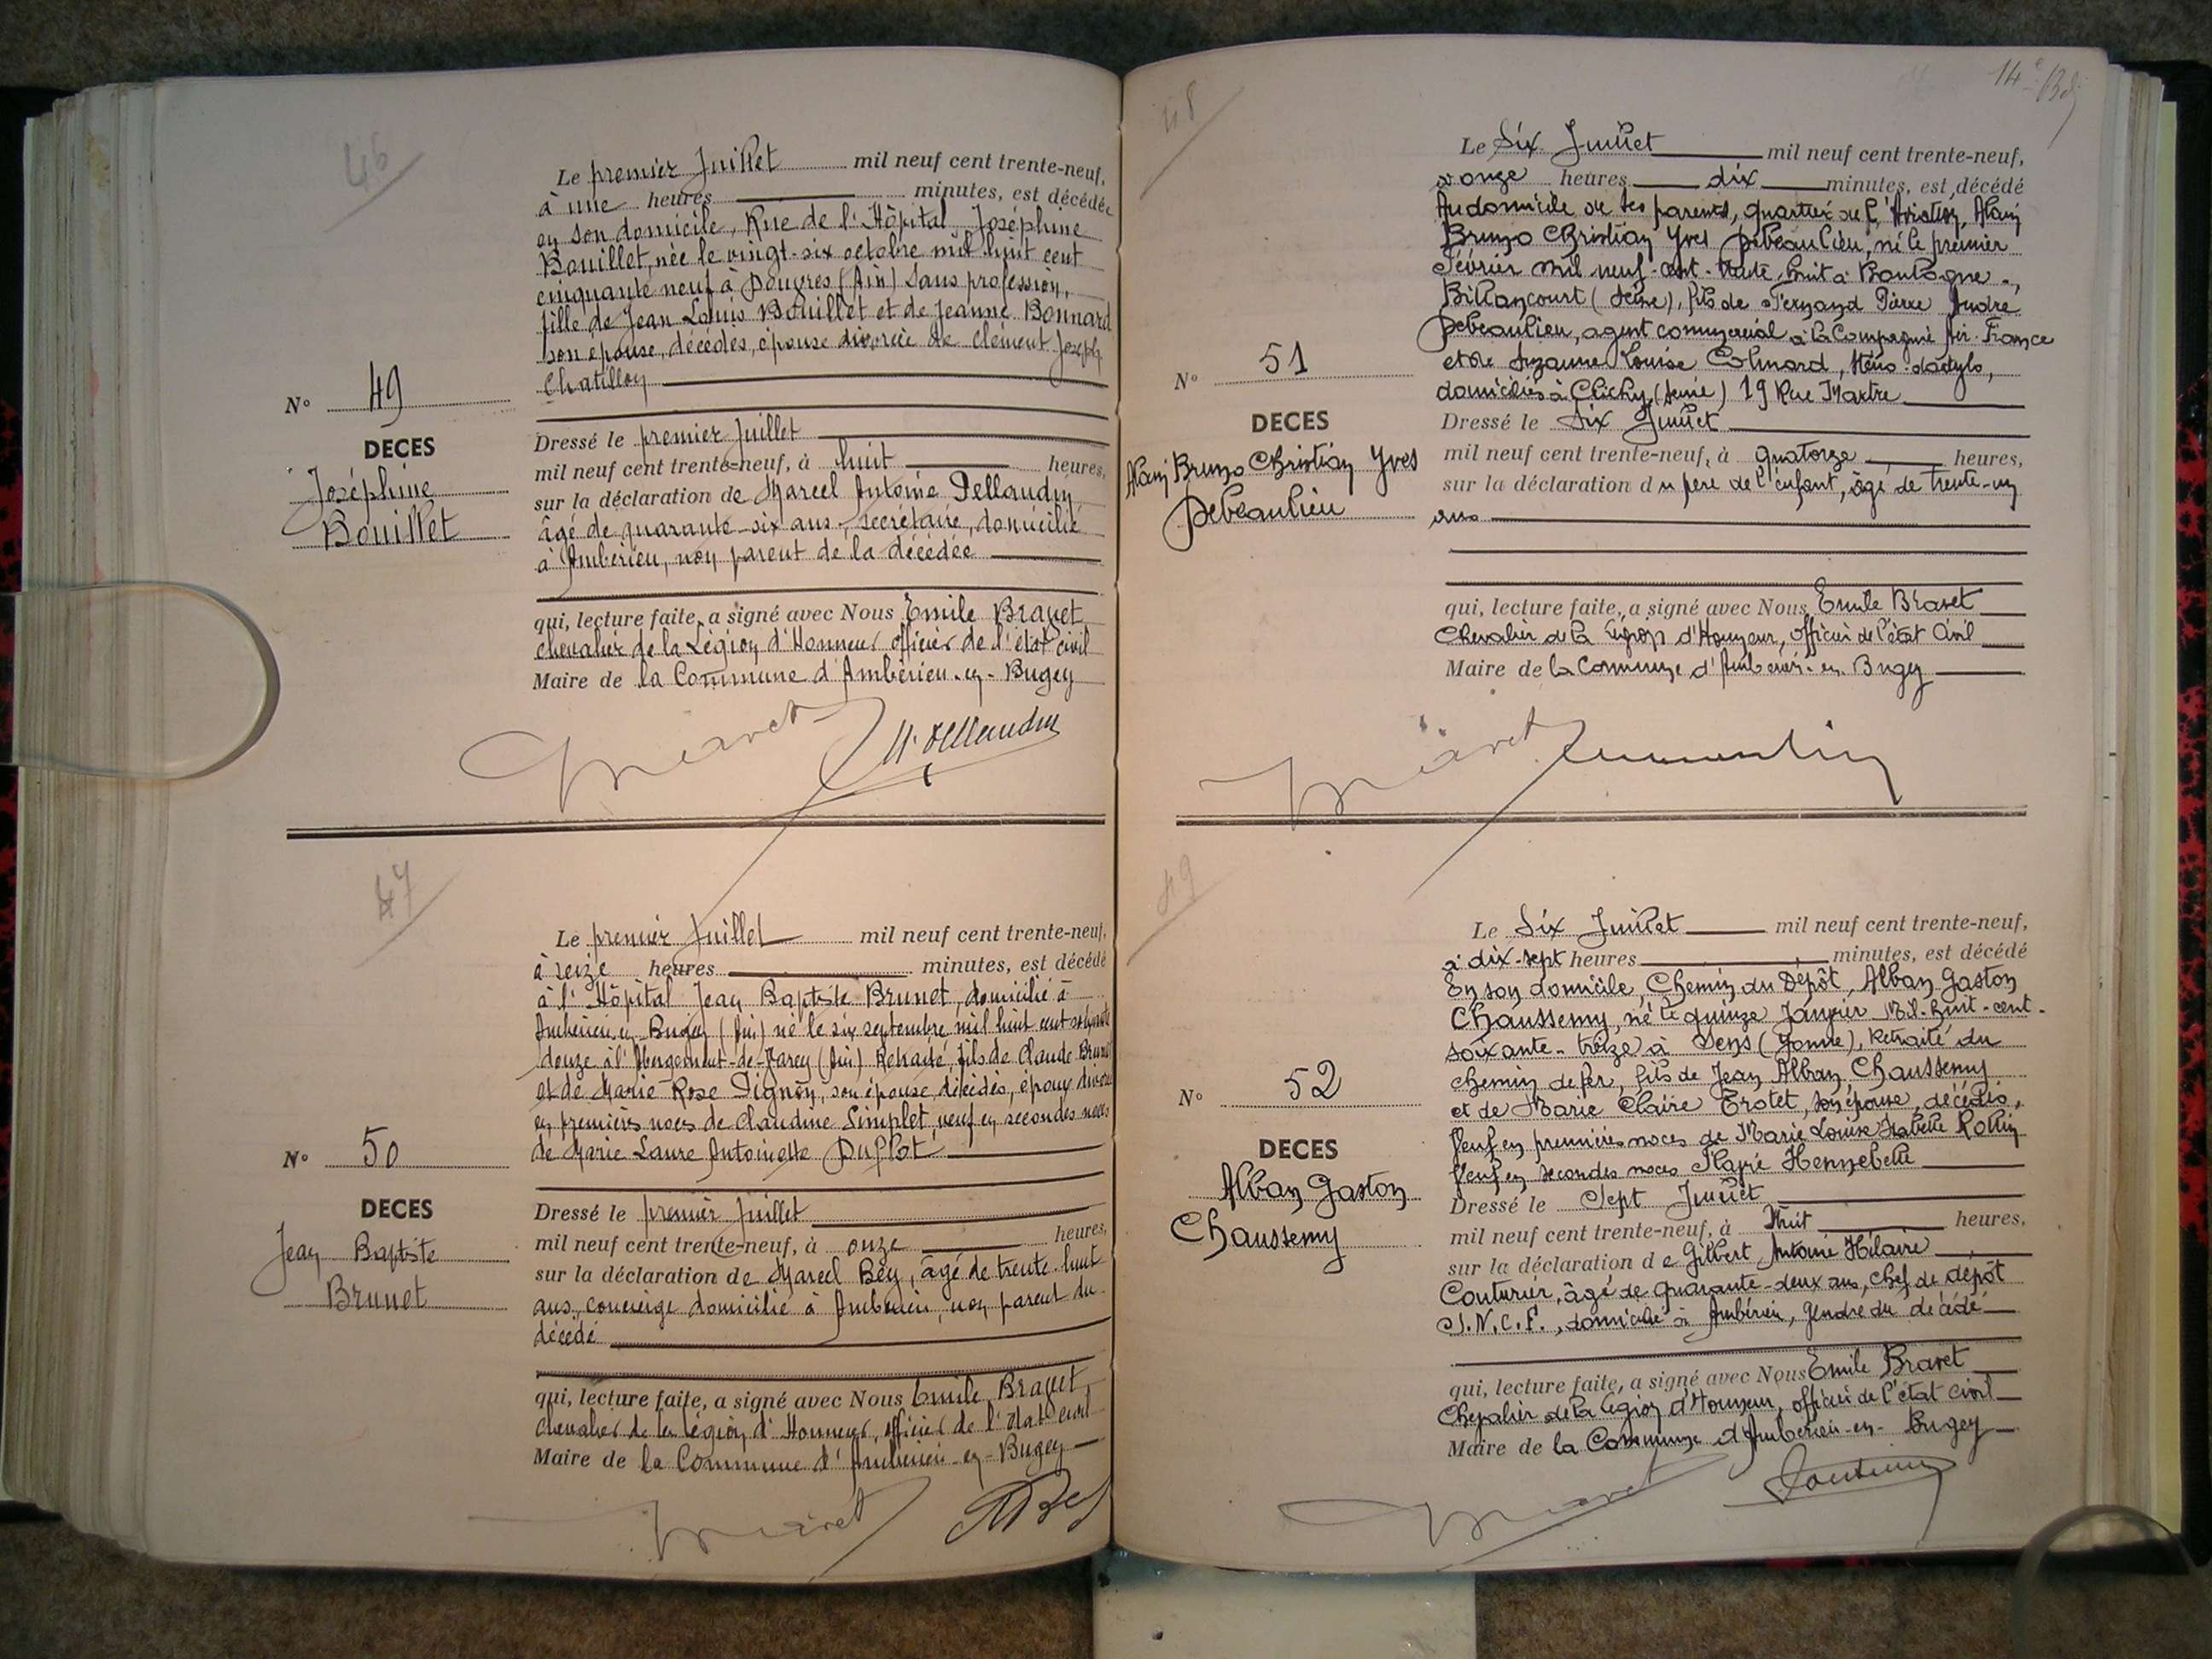 46
Le premier Juillet mil neuf cent trente-neuf,
à une heures minutes, est décédée
en son domicile, Rue de l'Hôpital Joséphine
Bouillet, née le vingt-six octobre mil huit cent
cinquante neuf à Douvres (Ain) sans profession,
fille de Jean Louis Bouillet et de Jeanne Bonnard
son épouse, décédés, épouse divorcée de Clément Joseph
Chatillon
N° 49
DECES
Joséphine
Bouillet
Dressé le premier Juillet
mil neuf cent trente-neuf, à huit heures,
sur la déclaration de Marcel Antoine Pellaudin
âgé de quarante-six ans, secrétaire, domicilié
à Ambérieu, non parent de la décédée
qui, lecture faite, a signé avec Nous Emile Bravet
chevalier de la Légion d'Honneur officier de l'état civil
Maire de la Commune d'Ambérieu-en-Bugey
47
Le premier Juillet mil neuf cent trente-neuf,
à seize heures minutes, est décédé
à l'Hôpital Jean Baptiste Brunet, domicilié à
Ambérieu en Bugey (Ain) né le six septembre mil huit cent soixante
douze à l'Abergement-de-Varey (Ain) Retraité, fils de Claude Brunet
et de Marie Rose Pignon, son épouse, décédés, époux divorcé
en premières noces de Claudine Simplet, veuf en secondes noces
de Marie Laure Antoinette Duflot
N° 50
DECES
Jean Baptiste
Brunet
Dressé le premier Juillet
mil neuf cent trente-neuf, à onze heures,
sur la déclaration de Marcel Bey, âgé de trente-huit
ans, concierge domicilié à Ambérieu, non parent du
décédé
qui, lecture faite, a signé avec Nous Emile Bravet
chevalier de la Légion d'Honneur, officier de l'état civil
Maire de la Commune d'Ambérieu-en-Bugey
48
14e
Le Six Juillet mil neuf cent trente-neuf,
à onze heures dix minutes, est décédé
Au domicile de ses parents, quartier de l'Aviation, Alain
Bruno Christian Yves Debeaulieu, né le premier
Février mil neuf-cent-trente-huit à Boulogne-
Billancourt (Seine), fils de Fernand Pierre André
Debeaulieu, agent commercial à la Compagnie Air-France
et de Suzanne Louise Colmard, sténo-dactylo,
domiciliés à Clichy (Seine) 19 Rue Martre
N° 51
DECES
Alain Bruno Christian Yves
Debeaulieu
Dressé le Six Juillet
mil neuf cent trente-neuf, à quatorze heures,
sur la déclaration du père de l'enfant, âgé de trente-un
ans
qui, lecture faite, a signé avec Nous Emile Bravet
Chevalier de la Légion d'Honneur, officier de l'état Civil
Maire de la Commune d'Ambérieu-en-Bugey
49
Le Six Juillet mil neuf cent trente-neuf,
à dix-sept heures minutes, est décédé
En son domicile, Chemin du Dépôt, Alban Gaston
Chaussemy, né le quinze Janvier Mil-huit-cent-
soixante-treize à Sens (Yonne), Retraité du
chemin de fer, fils de Jean Alban Chaussemy
et de Marie Claire Trotet, son épouse, décédés,
Veuf en premières noces de Marie Louise Isabelle Rollin
Veuf en secondes noces Marie Hennebelle
N° 52
DECES
Alban Gaston
Chaussemy
Dressé le Sept Juillet
mil neuf cent trente-neuf, à Huit heures,
sur la déclaration de Gilbert Antoine Hilaire
Couturier, âgé de quarante-deux ans, chef de dépôt
S.N.C.F., domicilié à Ambérieu, gendre du décédé
qui, lecture faite, a signé avec Nous Emile Bravet
Chevalier de la Légion d'Honneur, officier de l'état civil
Maire de la Commune d'Ambérieu-en-Bugey